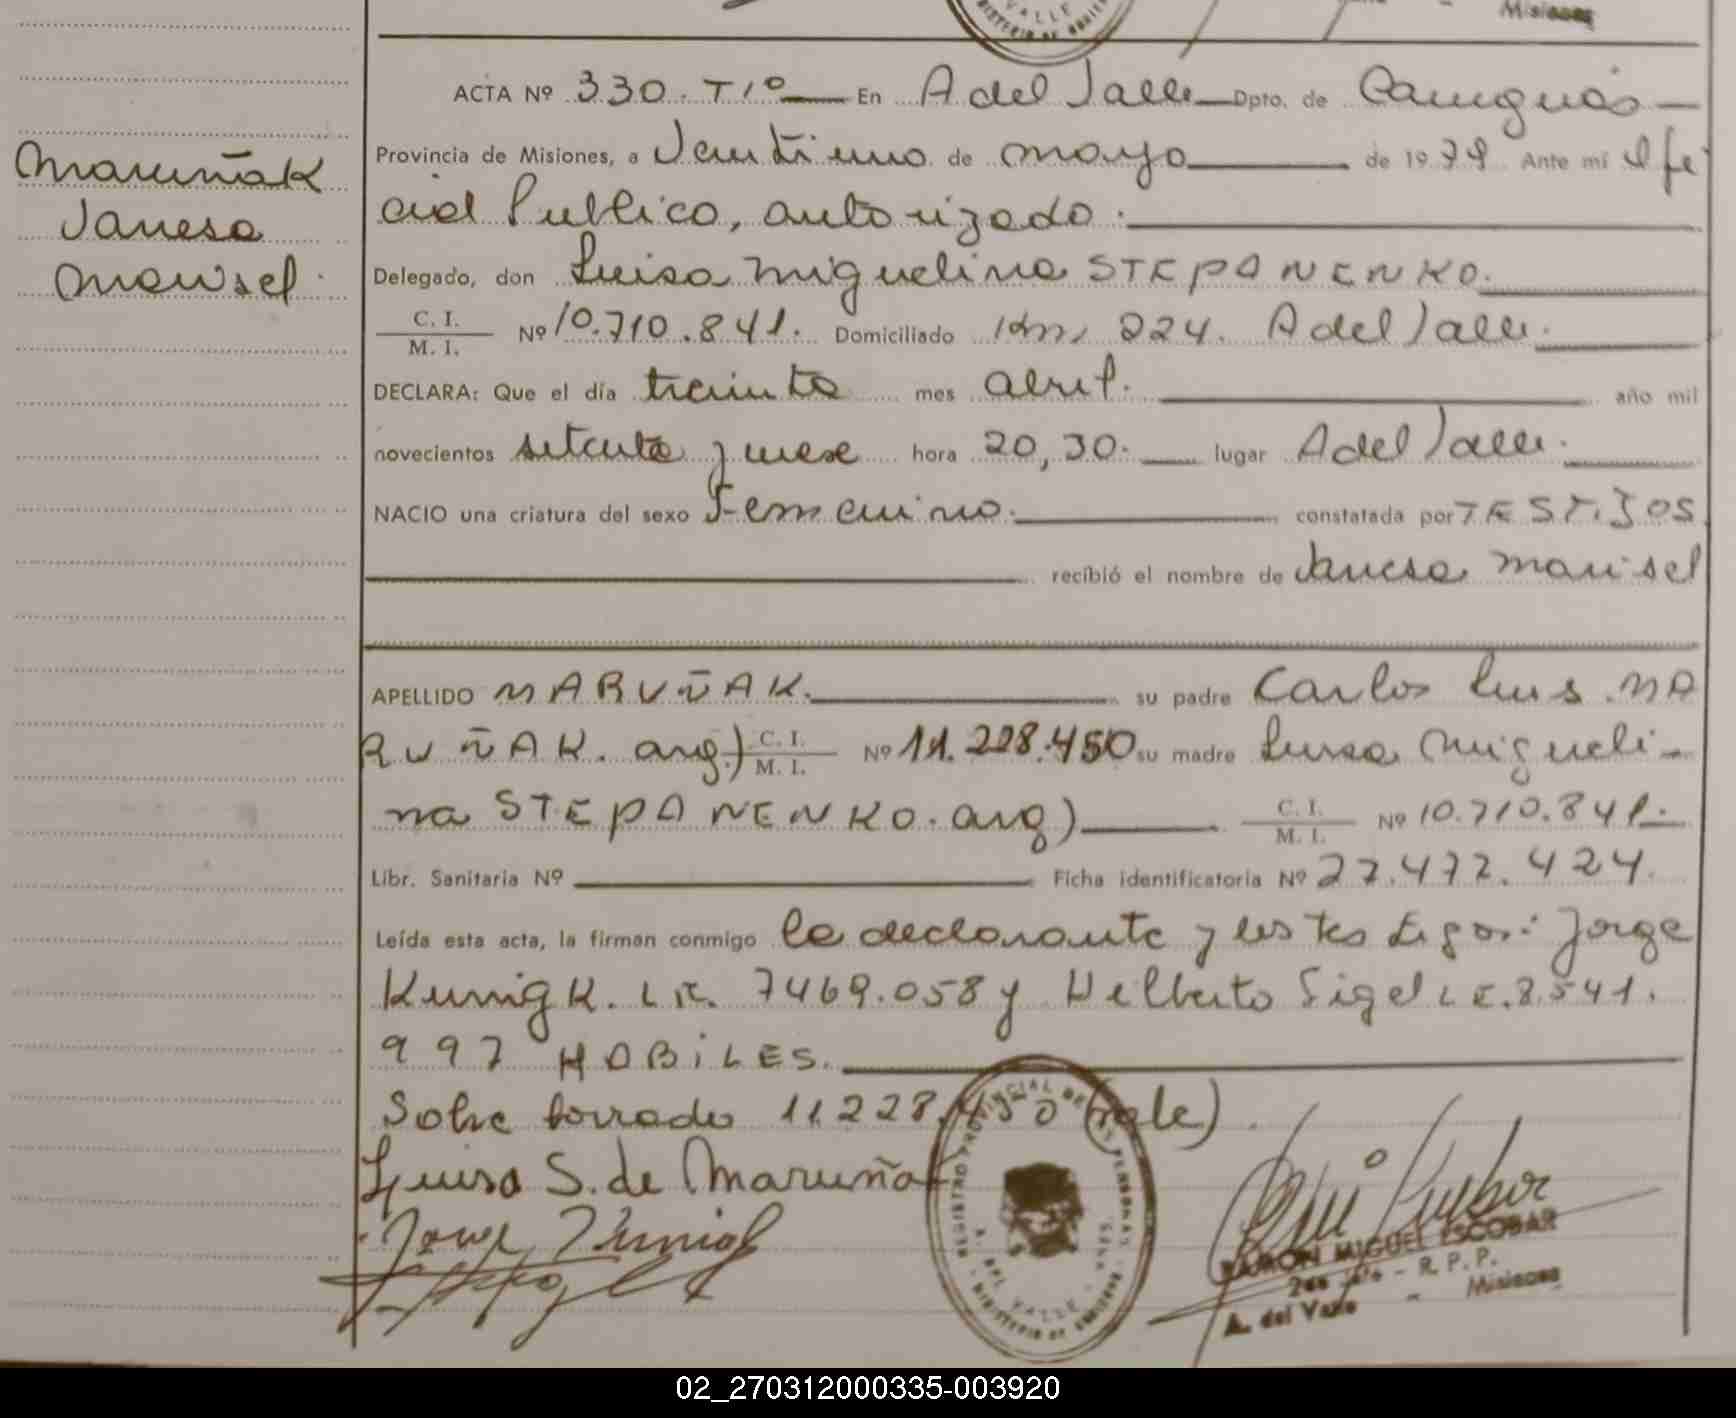 VALLE
Misiones
ACTA Nº 330. T1º En A del Valle Dpto. de Cainguás
Maruñak
Provincia de Misiones, a Veintiuno de mayo de 1979 Ante mí Ofi
Vanesa
cial Publico, autorizado.
Marisel.
Delegado, don Luisa Miguelina STEPANENKO.
C. I.
M. I. Nº 10.710.841. Domiciliado Km, 224. A del Valle.
DECLARA: Que el día treinta mes abril. año mil
novecientos setenta y nueve hora 20,30. lugar A del Valle.
NACIO una criatura del sexo Femenino. constatada por TESTIJOS
recibió el nombre de Vanesa Marisel
APELLIDO MARUÑAK. su padre Carlos Luis MA
RUÑAK. arg.) C. I. / M. I. Nº 11.228.450 su madre Luisa Migueli-
na STEPANENKO. arg) C. I. / M. I. Nº 10.710.841.
Libr. Sanitaria Nº Ficha identificatoria Nº 27.472.424.
Leída esta acta, la firman conmigo la declarante y los testigos: Jorge
Kunigk. L.E. 7469.058 y Helberto Sigel L E. 8.541.
997 HABILES.
Sobre borrado 11.228.450 (vale).
Luisa S. de Maruñak
REGISTRO PROVINCIAL DE LAS PERSONAS
A. DEL VALLE
MINISTERIO DE GOBIERNO
RAMON MIGUEL ESCOBAR
R. P. P.
A. del Valle - Misiones
02_270312000335-003920